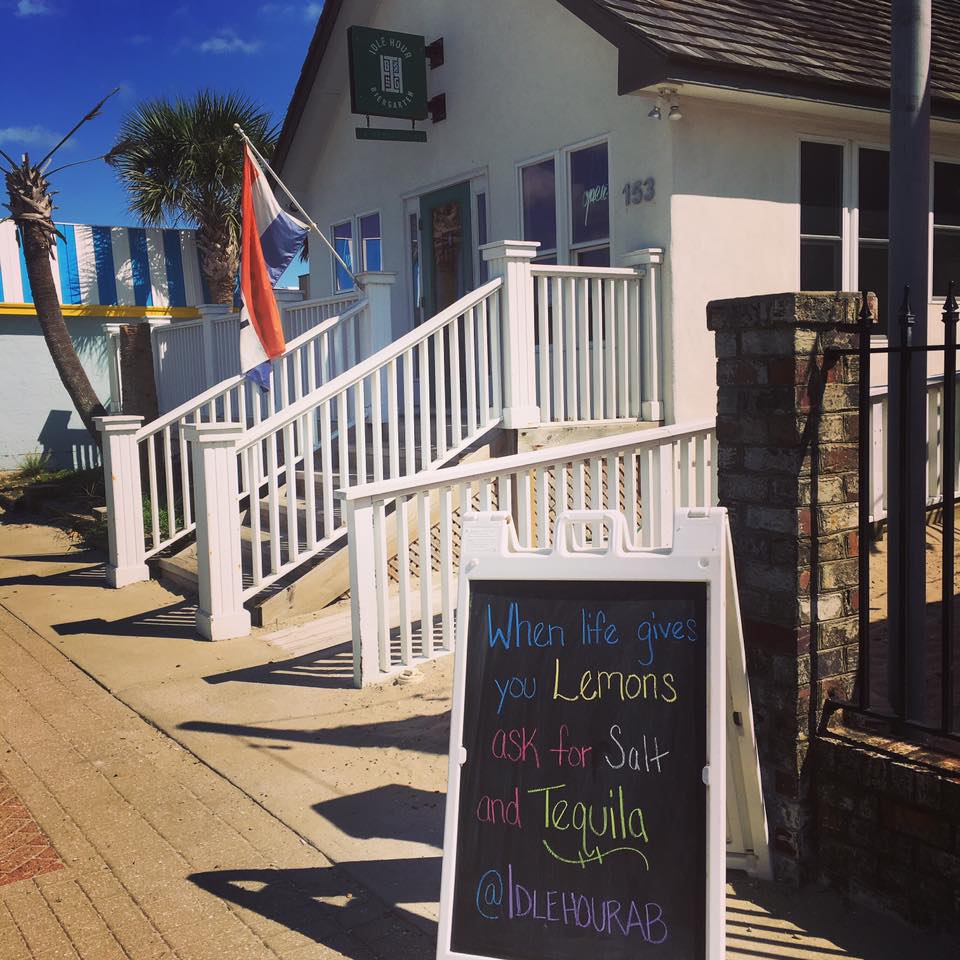 IDLE HOUR
BIERGARTEN
open
153
When life gives
you Lemons
ask for Salt
and Tequila
@IDLEHOURAB